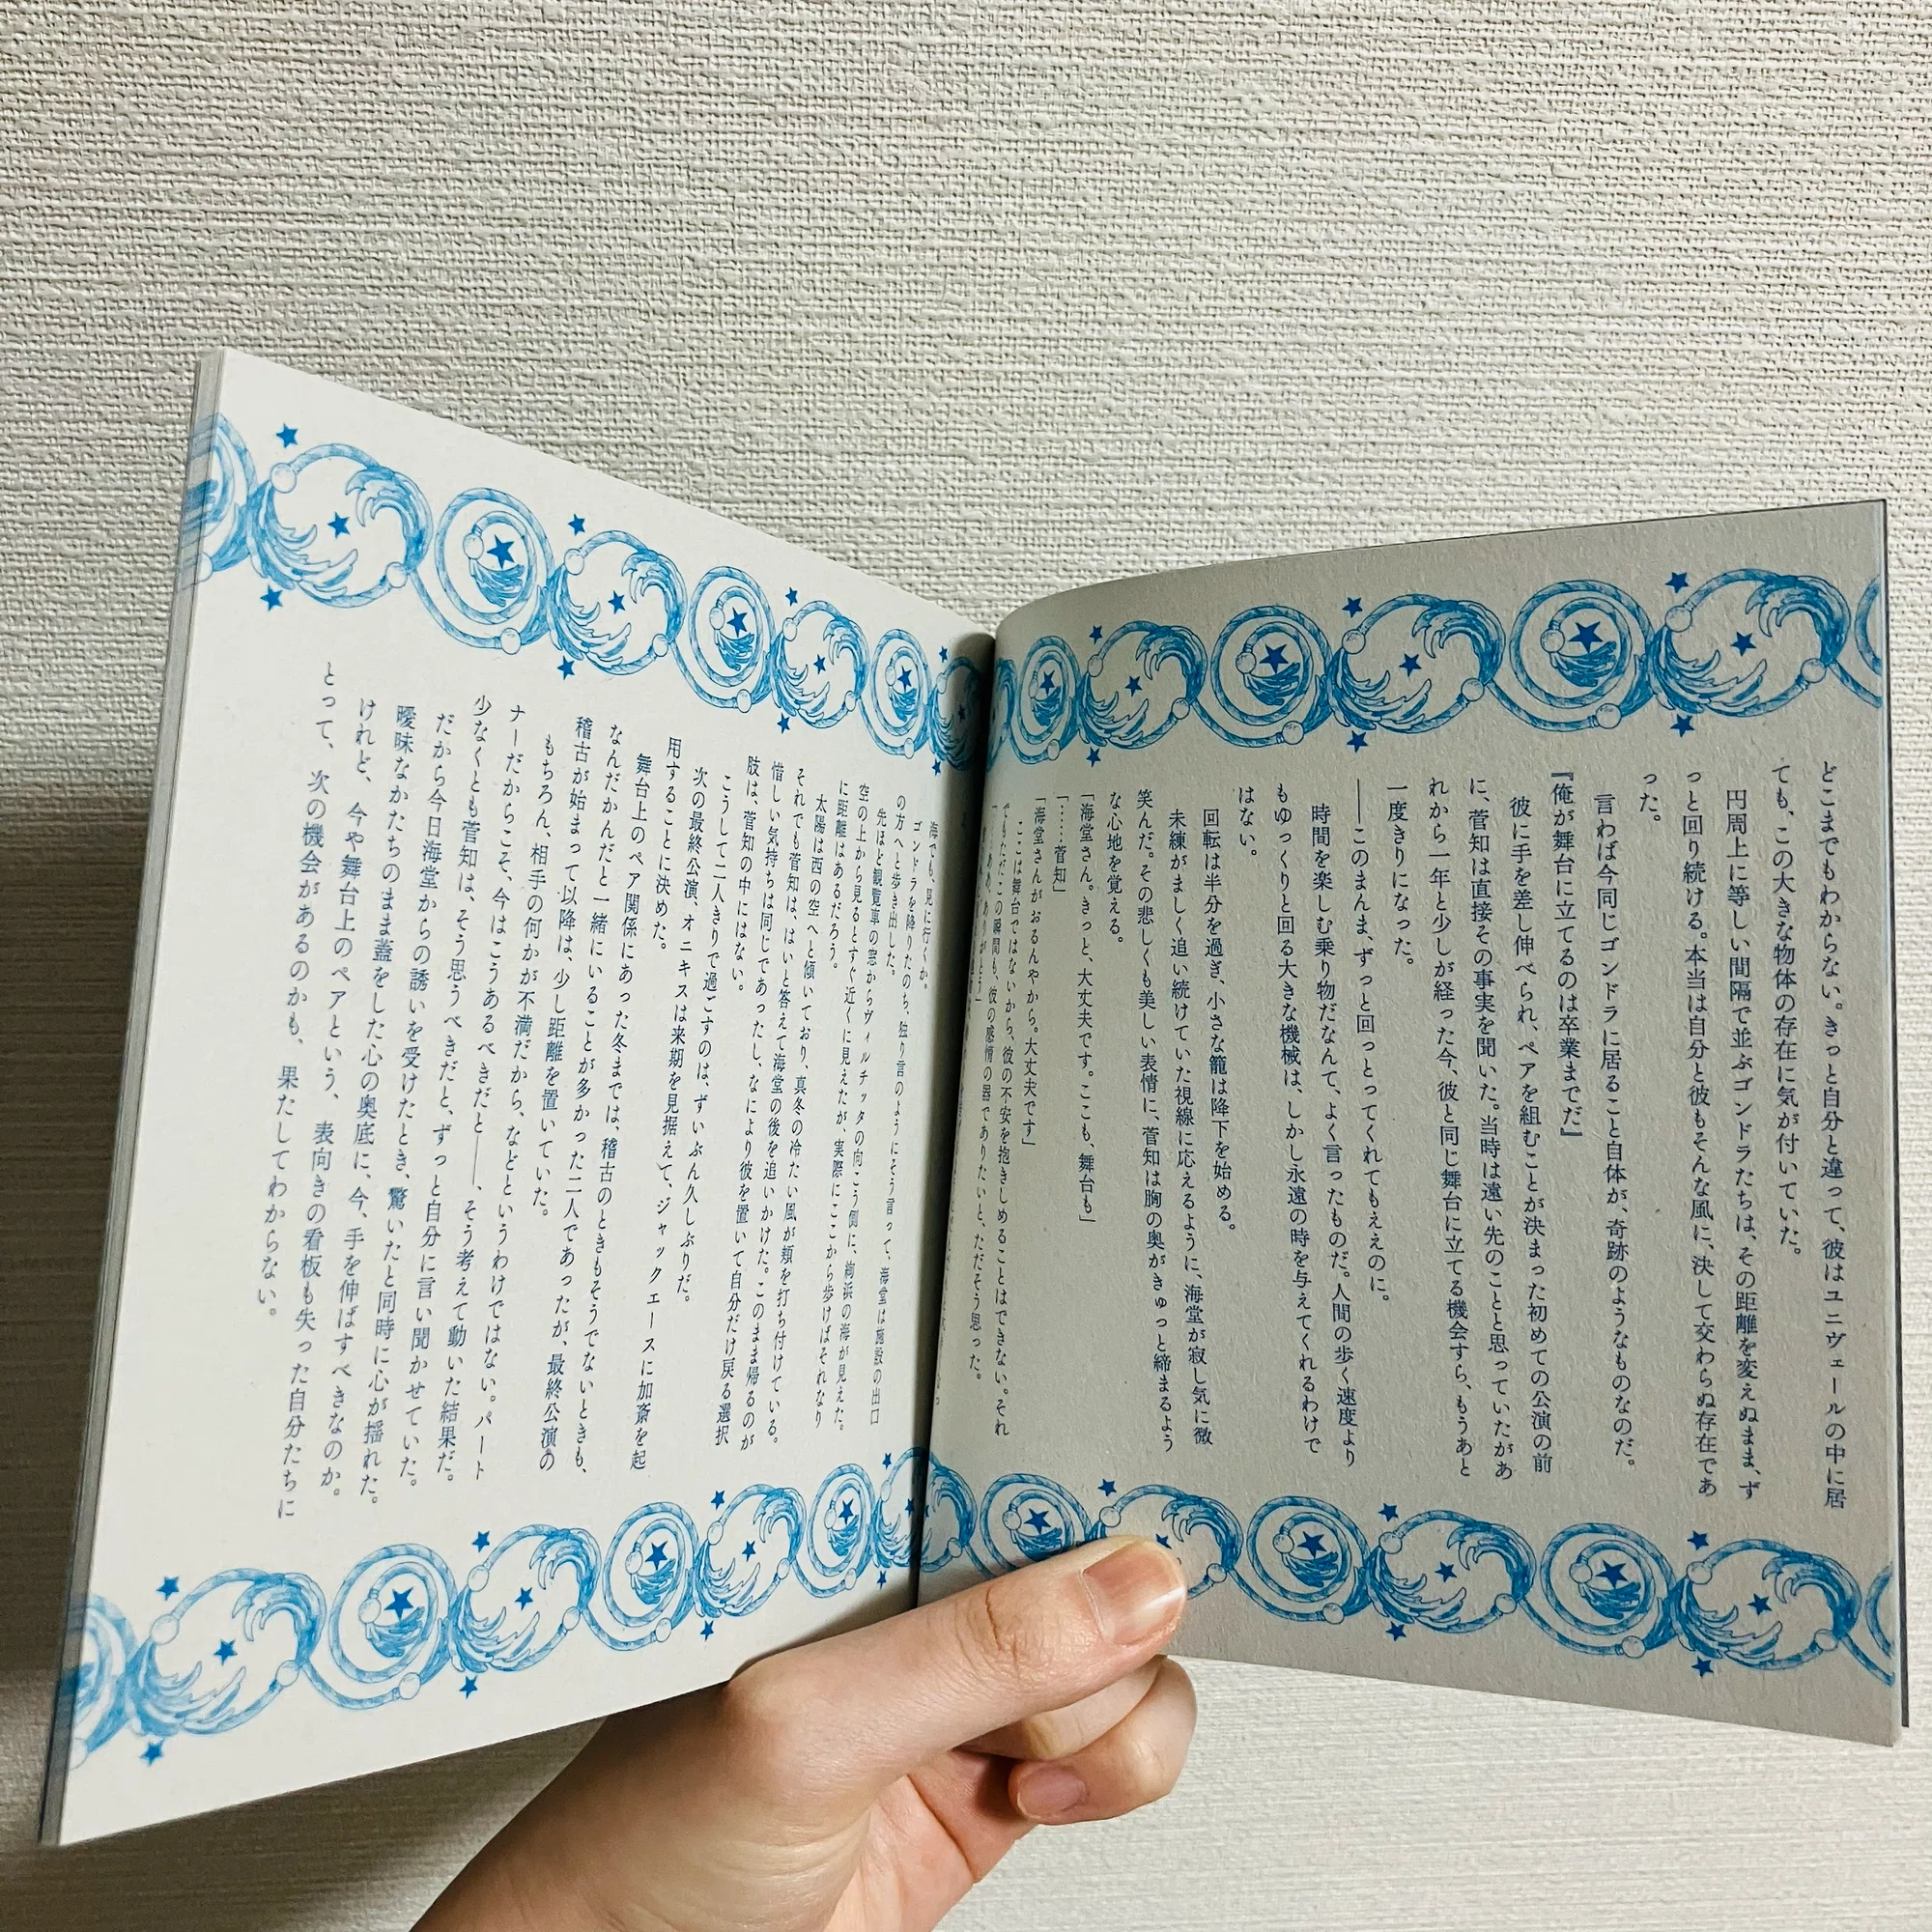 どこまでもわからない。きっと自分と違って、彼はユニヴェールの中に居
ても、この大きな物体の存在に気が付いていた。
円周上に等しい間隔で並ぶゴンドラたちは、その距離を変えぬまま、ず
っと回り続ける。本当は自分と彼もそんな風に、決して交わらぬ存在であ
った。
言わば今同じゴンドラに居ること自体が、奇跡のようなものなのだ。
『俺が舞台に立てるのは卒業までだ』
彼に手を差し伸べられ、ペアを組むことが決まった初めての公演の前
に、菅知は直接その事実を聞いた。当時は遠い先のことと思っていたがあ
れから一年と少しが経った今、彼と同じ舞台に立てる機会すら、もうあと
一度きりになった。
――このまんま、ずっと回っとってくれてもええのに。
時間を楽しむ乗り物だなんて、よく言ったものだ。人間の歩く速度より
もゆっくりと回る大きな機械は、しかし永遠の時を与えてくれるわけで
はない。
回転は半分を過ぎ、小さな籠は降下を始める。
未練がましく追い続けていた視線に応えるように、海堂が寂し気に微
笑んだ。その悲しくも美しい表情に、菅知は胸の奥がきゅっと締まるよう
な心地を覚える。
「海堂さん。きっと、大丈夫です。ここも、舞台も」
「……菅知」
「海堂さんがおるんやから。大丈夫です」
ここは舞台ではないから、彼の不安を抱きしめることはできない。それ
でもただこの瞬間も、彼の感情の器でありたいと、ただそう思った。
海でも、見に行くか。
ゴンドラを降りたのち、独り言のようにそう言って、海堂は施設の出口
の方へと歩き出した。
先ほど観覧車の窓からヴィルチッタの向こう側に、絢浜の海が見えた。
空の上から見るとすぐ近くに見えたが、実際にここから歩けばそれなり
に距離はあるだろう。
太陽は西の空へと傾いており、真冬の冷たい風が頬を打ち付けている。
それでも菅知は、はいと答えて海堂の後を追いかけた。このまま帰るのが
惜しい気持ちは同じであったし、なにより彼を置いて自分だけ戻る選択
肢は、菅知の中にはない。
こうして二人きりで過ごすのは、ずいぶん久しぶりだ。
次の最終公演、オニキスは来期を見据えて、ジャックエースに加斎を起
用することに決めた。
舞台上のペア関係にあった冬までは、稽古のときもそうでないときも、
なんだかんだと一緒にいることが多かった二人であったが、最終公演の
稽古が始まって以降は、少し距離を置いていた。
もちろん、相手の何かが不満だから、などというわけではない。パート
ナーだからこそ、今はこうあるべきだと――、そう考えて動いた結果だ。
少なくとも菅知は、そう思うべきだと、ずっと自分に言い聞かせていた。
だから今日海堂からの誘いを受けたとき、驚いたと同時に心が揺れた。
曖昧なかたちのまま蓋をした心の奥底に、今、手を伸ばすべきなのか。
けれど、今や舞台上のペアという、表向きの看板も失った自分たちに
とって、次の機会があるのかも、果たしてわからない。